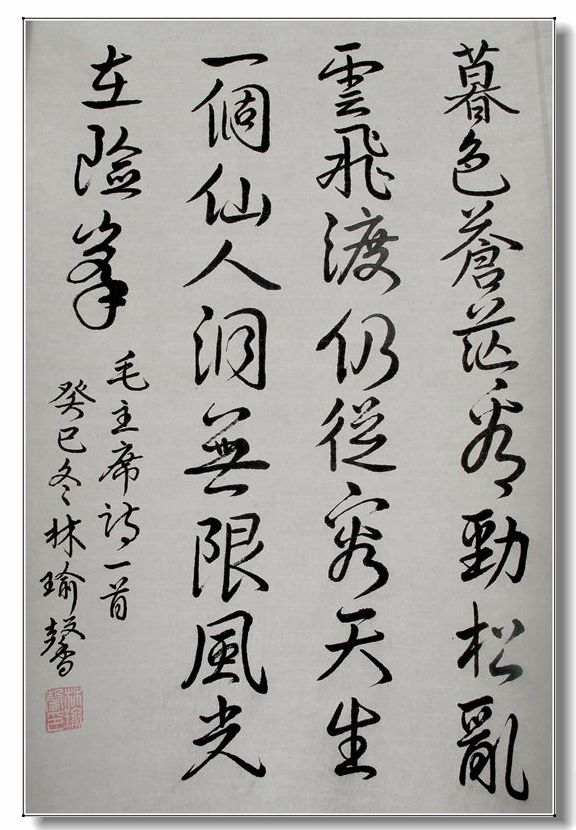 暮色蒼茫看勁松亂
雲飛渡仍從容天生
一個仙人洞無限風光
在險峯
毛主席詩一首
癸巳冬林瑜馨